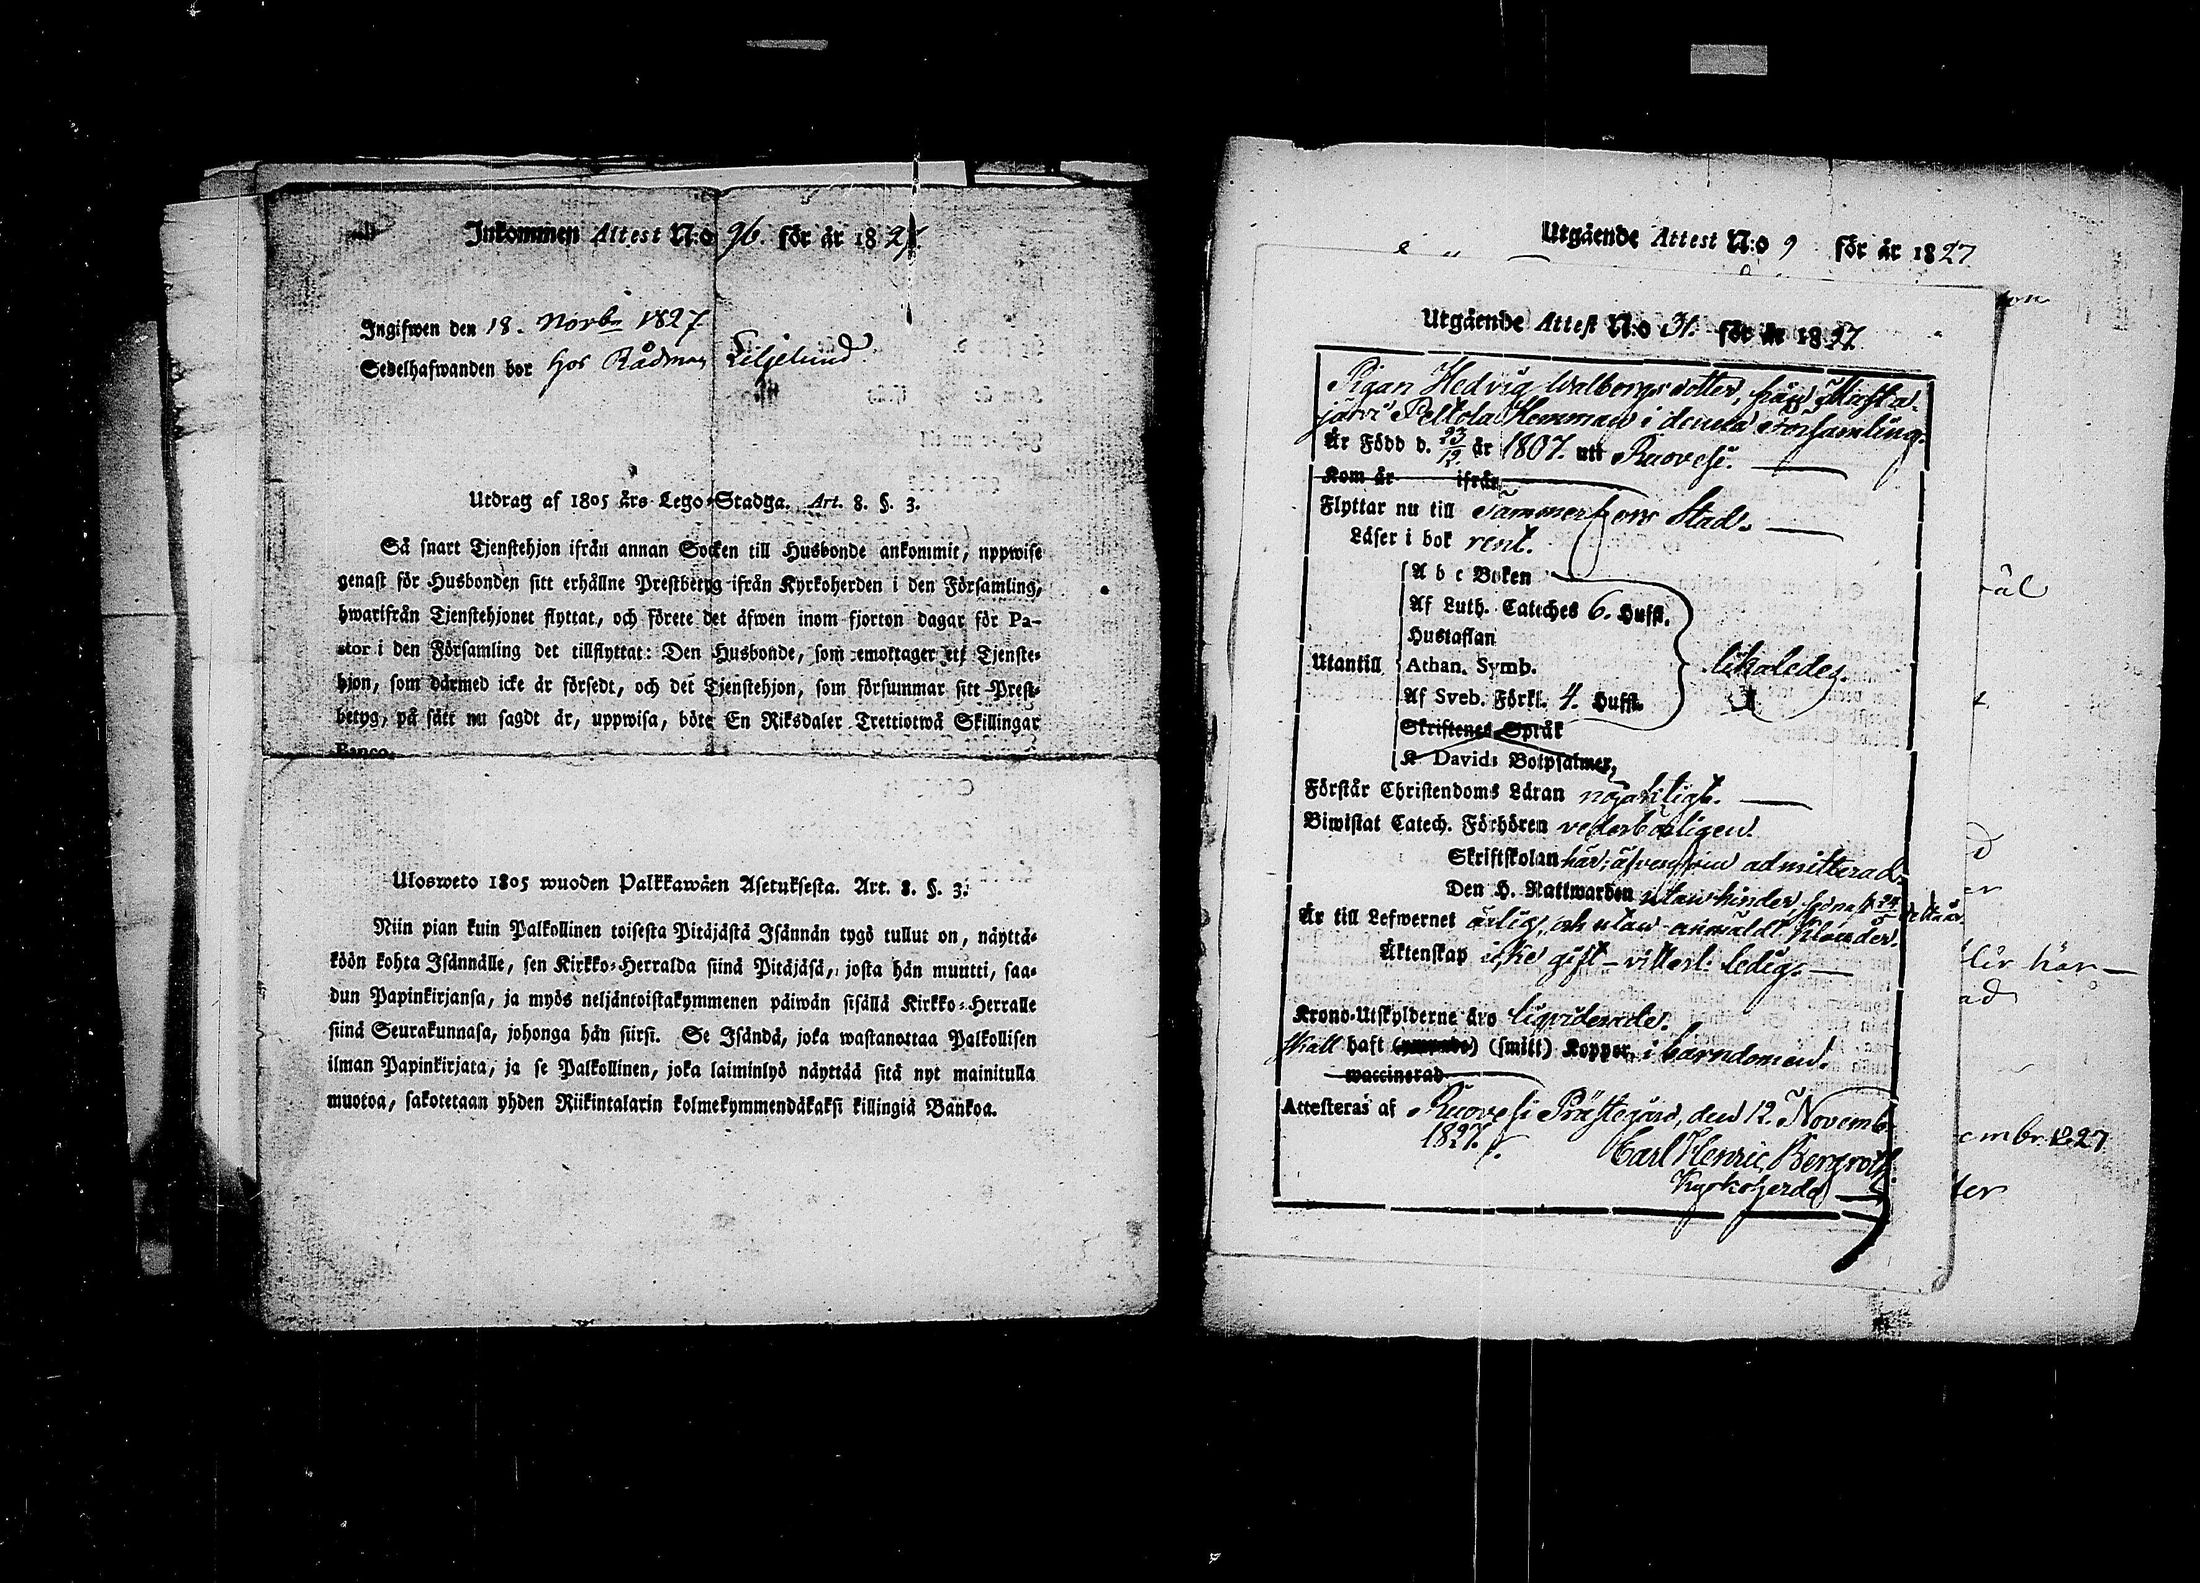 Inkommen Attest N:o 96. för år 1827.
Ingifwen den 18. Novbr 1827
Sedelhafwanden bor hos Rådman Liljelund
Utdrag af 1805 års Lego-Stadga. Art. 8. §. 3.
Så snart Tjenstehjon ifrån annan Socken till Husbonde ankommit, uppwise
genast för Husbonden sitt erhållne Prestbetyg ifrån Kyrkoherden i den Församling,
hwarifrån Tjenstehjonet flyttat, och förete det äfwen inom fjorton dagar för Pa-
stor i den Församling det tillflyttat: Den Husbonde, som emottager ett Tjenste-
hjon, som därmed icke är försedt, och det Tjenstehjon, som försummar sitt Prest-
betyg, på sätt nu sagdt är, uppwisa, böte En Riksdaler Trettiotwå Skillingar
Banco.
Ulosweto 1805 wuoden Palkkawäen Asetuksesta. Art. 8. §. 3.
Niin pian kuin Palkollinen toisesta Pitäjästä Isännän tygö tullut on, näyttä-
köön kohta Isännälle, sen Kirkko-Herralda siinä Pitäjäsä, josta hän muutti, saa-
dun Papinkirjansa, ja myös neljäntoistakymmenen päiwän sisällä Kirkko-Herralle
siinä Seurakunnasa, johonga hän siirsi. Se Isändä, joka wastanottaa Palkollisen
ilman Papinkirjata, ja se Palkollinen, joka laiminlyö näyttää sitä nyt mainitulla
muotoa, sakotetaan yhden Riikintalarin kolmekymmendäkaksi killingiä Bankoa.
Utgående Attest N:o 9 för år 1827
Utgående Attest N:o 31. för år 1827.
Pigan Hedvig Walborgsdotter, från Musta-
järvi Peltola Hemman i denna Församling.
Är Född d. 23/12. år 1807. uti Ruovesi.
Kom år ifrån
Flyttar nu till Tammerfors Stad.
Läser i bok rent.
Utantill
A b c Boken
Af Luth. Cateches 6. Hufst.
Hustaflan
Athan. Symb.
Af Sveb. Förkl. 4. Hufst.
Skriftenes Språk
K Davids Botpsalmer,
likaledes.
Förstår Christendoms Läran nöjaktigt.
Biwistat Catech. Förhören vederbörligen.
Skriftskolan här; äfven admitterad.
Den H. Nattwarden utan hinder, detta år
Är till Lefwernet ärlig, och utan anmäldt klander.
Äktenskap icke gift - vitterl: ledig.
Krono-Utskylderne äro liqviderade.
skall haft (smitt) Koppor, i barndomen.
waccinerad
Attesteras af Ruovesi Prästegård, den 12. Novemb.
1827.
Carl Henric Bergroth.
Kyrkoherde
äl
d
er
lir här
ad
embr 1827
ter